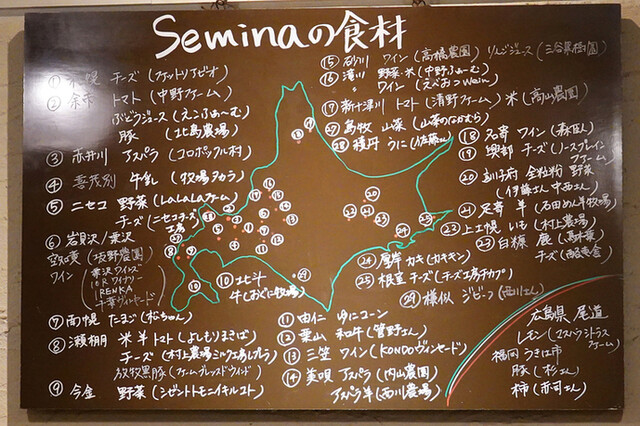 Seminaの食材
① 札幌 チーズ (ファットリアビオ)
② 余市 トマト (中野ファーム)
ぶどうジュース (えこふぁーむ)
豚 (北島農場)
③ 赤井川 アスパラ (コロポックル村)
④ 喜茂別 牛乳 (牧場タカラ)
⑤ ニセコ 野菜 (LaLaLaファーム)
チーズ (ニセコチーズ工房)
⑥ 岩見沢/栗沢
ワイン
栗沢ワインズ
10Rワイナリー
⑦ 南幌 たまご (松ちゃん)
⑧ 瀬棚 米 羊 トマト (よしもりまきば)
チーズ (村上農場
放牧黒豚 (ファームブレッスドウインド)
⑨ 今金 野菜
⑩ 北斗
牛 (おぐに牧場)
⑪ 由仁 ゆにコーン
⑫ 葉山 和牛 (菅野さん)
⑬ 三笠 ワイン (KONDOヴィンヤード)
⑭ 美唄 アスパラ (内山農園)
アスパラ羊 (西川農場)
⑮ 砂川 ワイン (高橋農園) りんごジュース
⑯ 滝川 野菜・米 (中野ふぁーむ)
〃 ワイン
⑰ 新十津川 トマト (清野ファーム) 米 (高山農園)
㉗ 島牧 山菜 (山菜のなかむら)
㉘ 積丹 うに (佐藤さん)
⑱ 名寄 ワイン (森臥さん)
⑲ 興部 チーズ (ノースプレインファーム)
⑳ 訓子府 全粒粉 野菜
(伊藤さん 中西さん)
㉑ 足寄 羊 (石田めん羊牧場)
㉒ 上士幌 いも (村上農場)
㉓ 白糠 鹿
チーズ (酪恵舎)
㉔ 厚岸 カキ (カキキン)
㉕ 根室 チーズ (チーズ工房チカプ)
㉙ 様似 ジビーフ (西川さん)
広島県 尾道
レモン
福岡 うきは市
豚 (杉さん)
柿